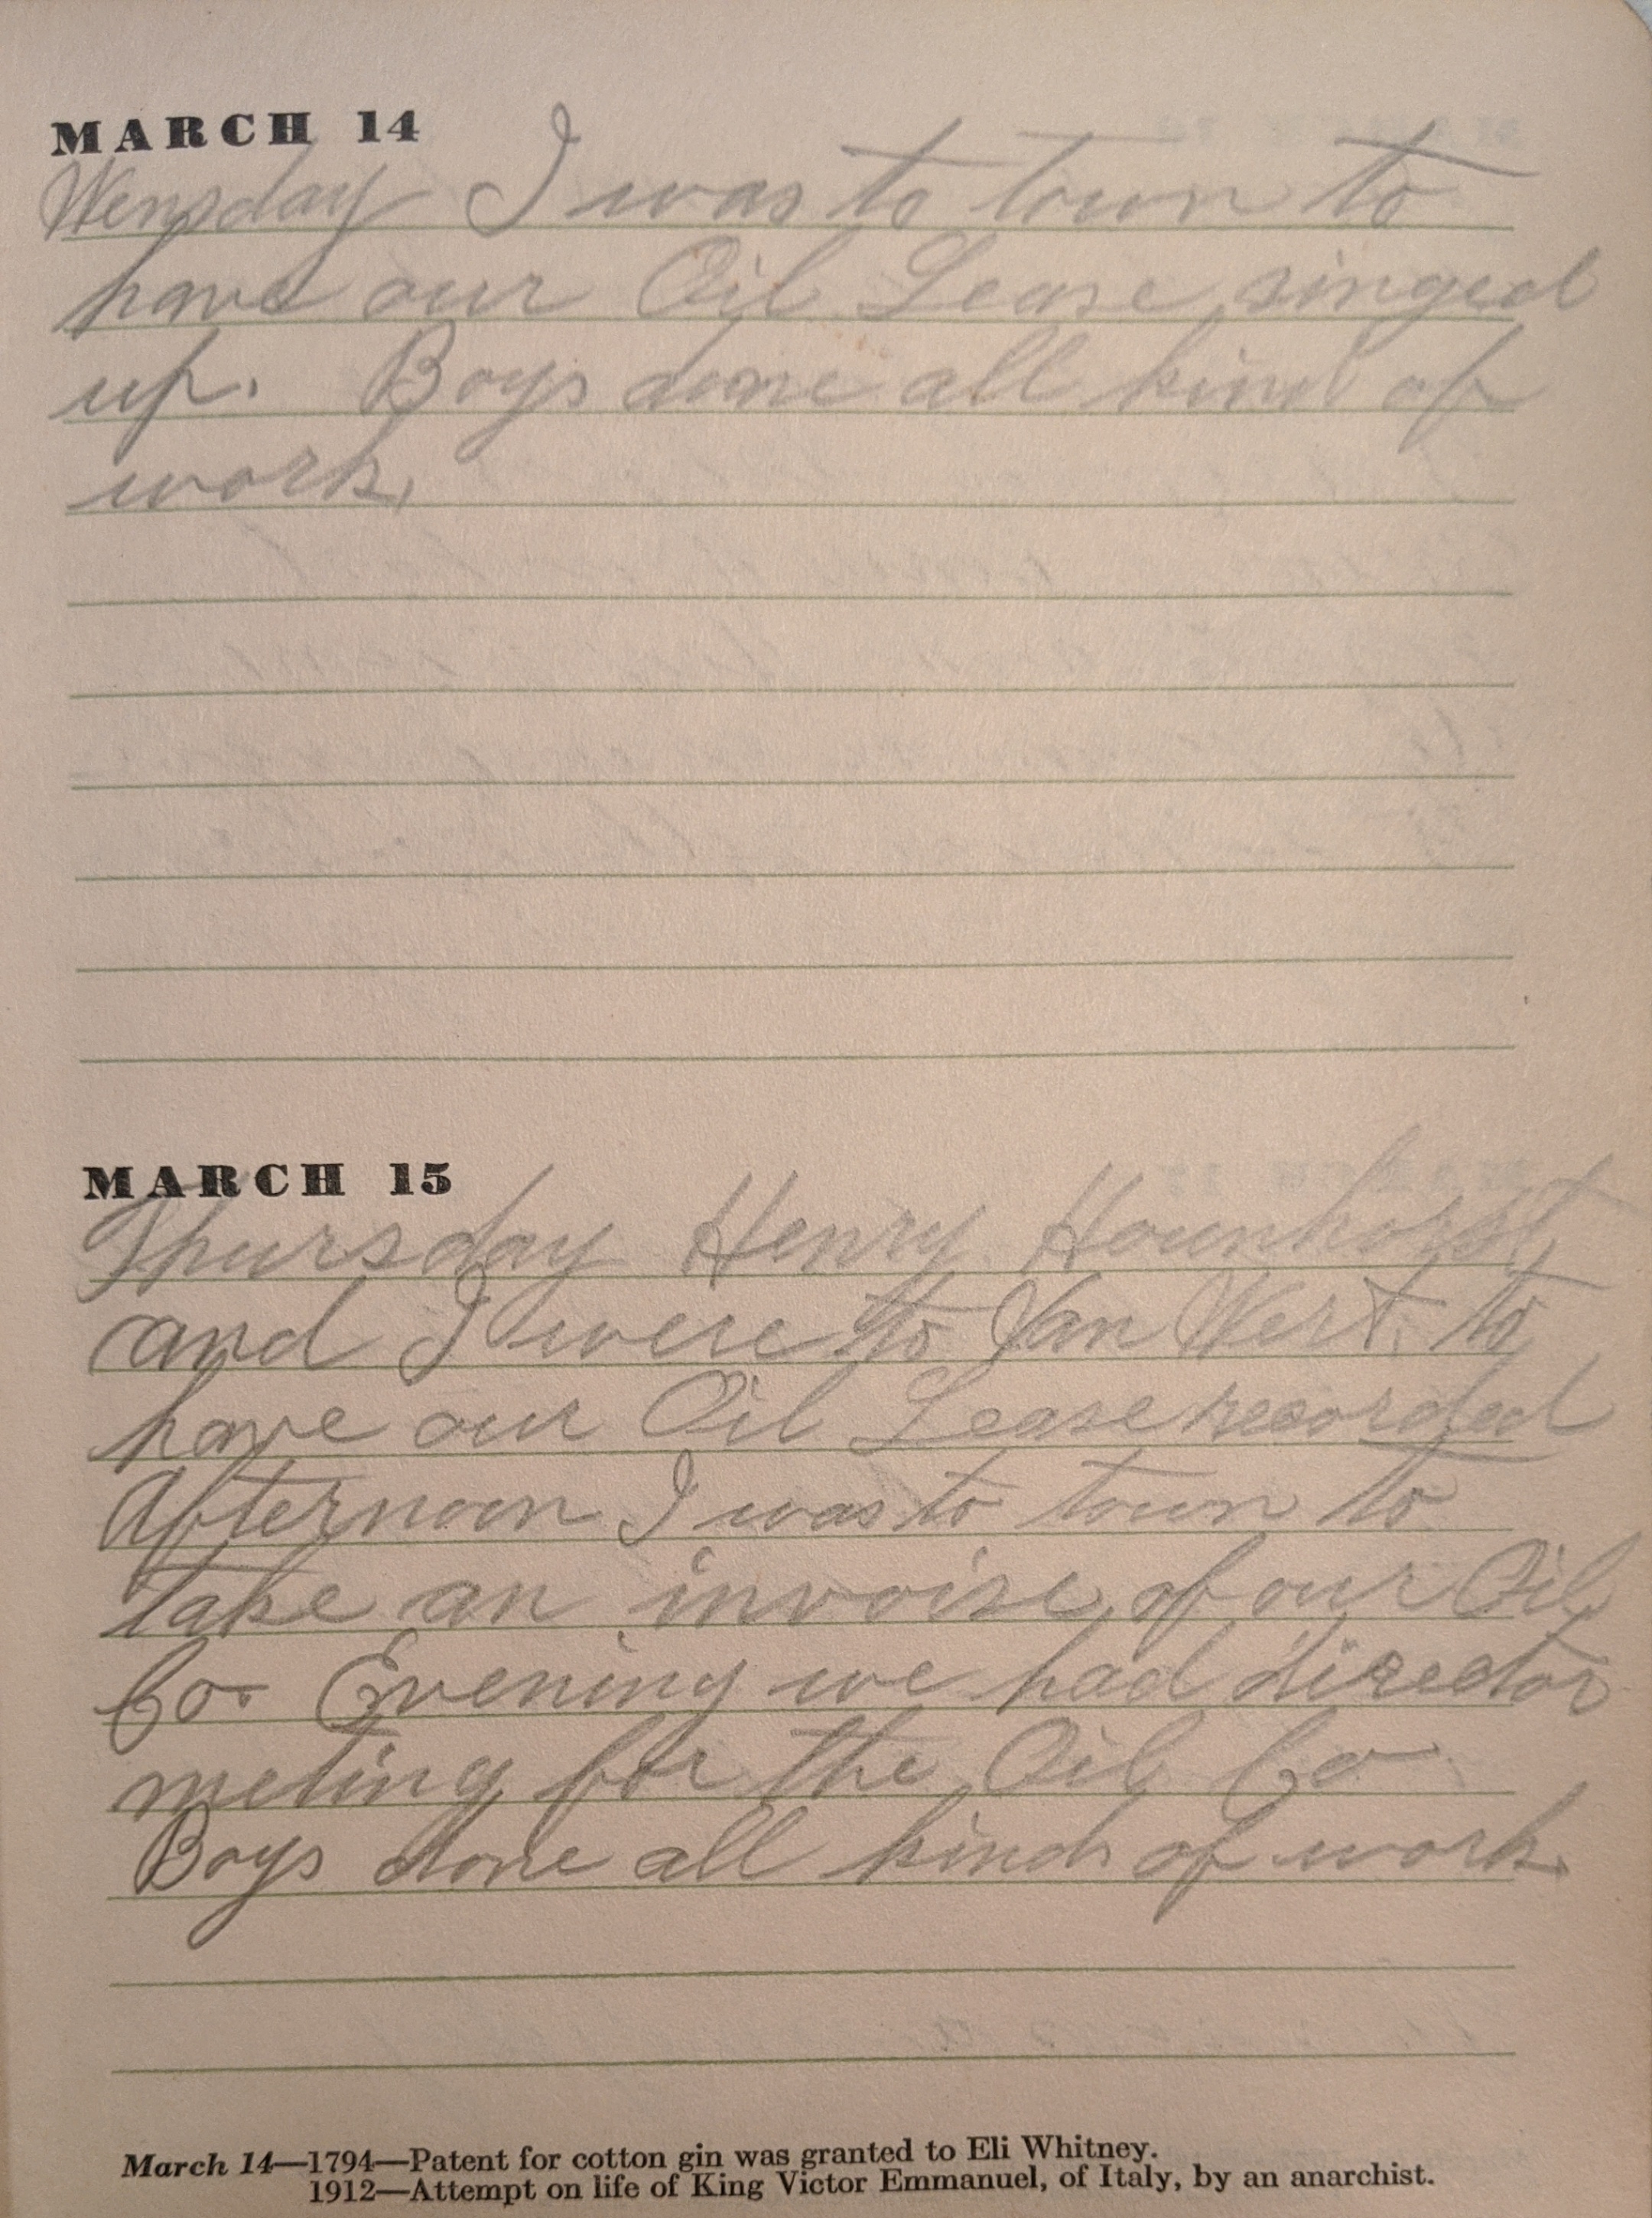 MARCH 14
Wensday I was to town to
have our Oil Lease singed
up. Boys done all kind of
work.
MARCH 15
Thursday Henry Hounhorst
and I were to Van Wert. to
have our Oil Lease recorded
Afternoon I was to town to
take an invoise of our Oil
Co. Evening we had director
meting for the Oil Co
Boys done all kind of work.
March 14—1794—Patent for cotton gin was granted to Eli Whitney.
1912—Attempt on life of King Victor Emmanuel, of Italy, by an anarchist.